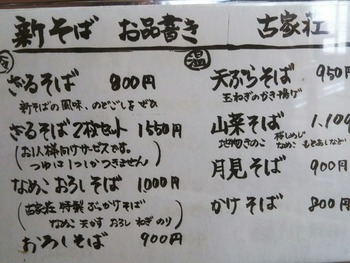 新そば お品書き 古家荘
冷
ざるそば 800円
新そばの風味、のどごしをぜひ
ざるそば2枚セット 1550円
(お1人様向けサービスです。
つゆは1つしかつきません)
なめこおろしそば 1000円
(古家荘特製ぶっかけそば
なめこ 天かす おろし ねぎ のり)
おろしそば 900円
温
天ぷらそば 950円
玉ねぎのかき揚げ
山菜そば 1.100
地物きのこ
なめこ もとあしなど
月見そば 900円
かけそば 800円